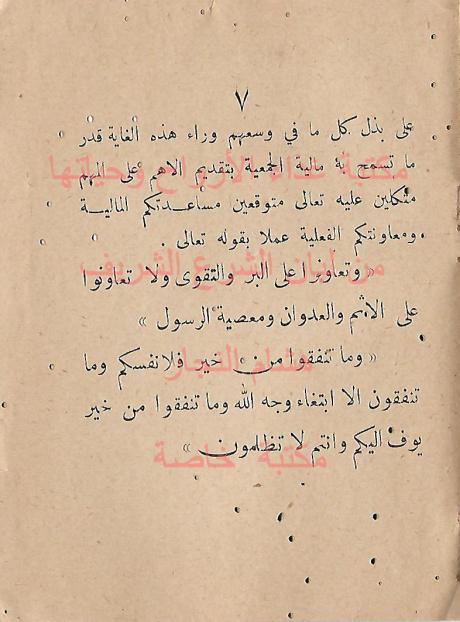 ٧
على بذل كل ما في وسعهم وراء هذه الغاية قدر
ما تسمح به مالية الجمعية بتقديم الاهم على المهم
متكلين عليه تعالى متوقعين مساعدتكم المالية
ومعاونتكم الفعلية عملا بقوله تعالى .
« وتعاونوا على البر والتقوى ولا تعاونوا
على الاثم والعدوان ومعصية الرسول »
« وما تنفقوا من خير فلانفسكم وما
تنفقون الا ابتغاء وجه الله وما تنفقوا من خير
يوف اليكم وانتم لا تظلمون »
مكتبة غذاء الأرواح وحياتها
من لبان الشرع الشريف
هشام النجار
مكتبة خاصة